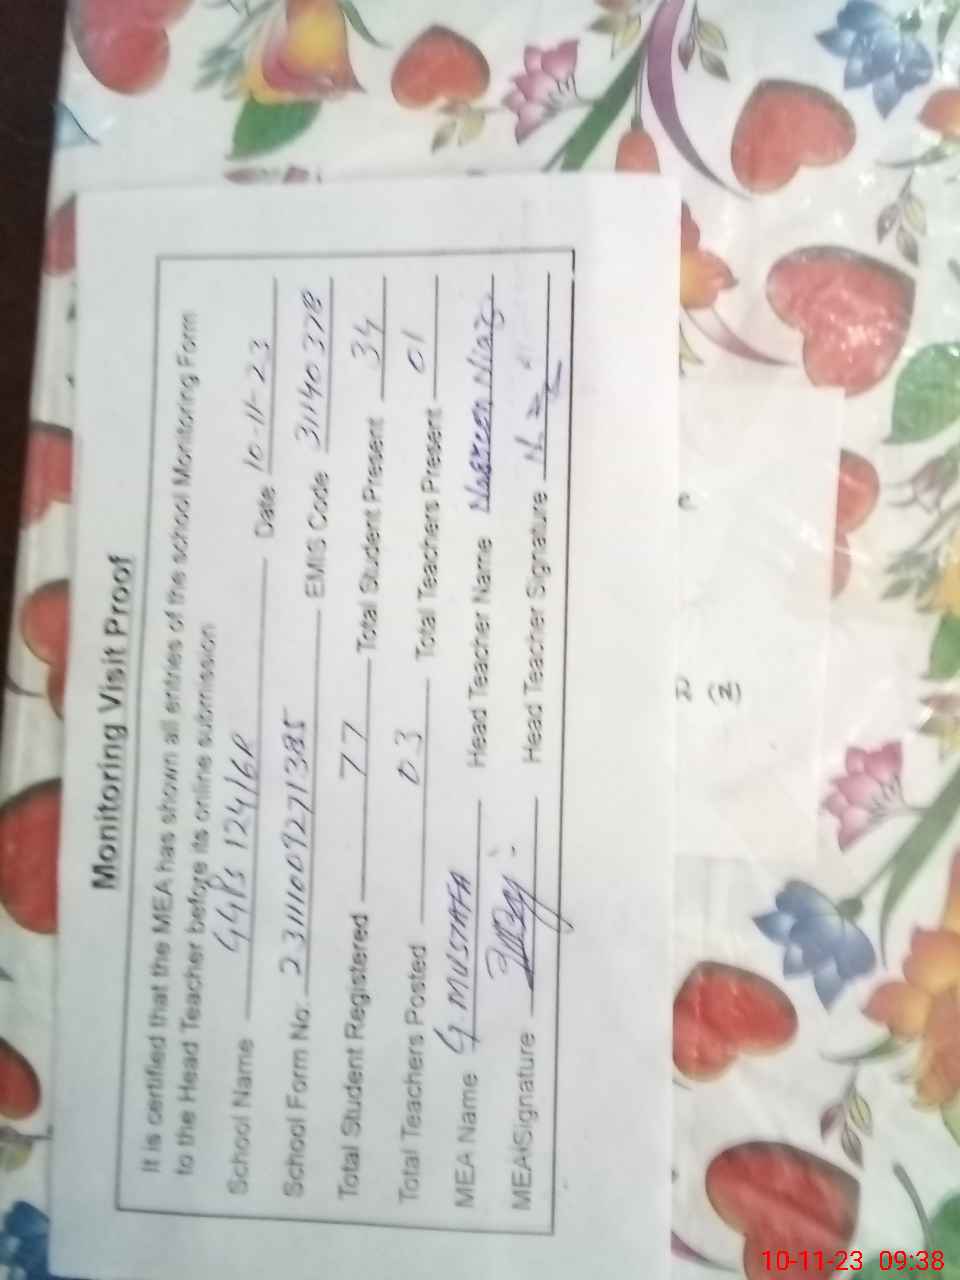 Monitoring Visit Proof
It is certified that the MEA has shown all entries of the school Monitoring Form
to the Head Teacher before its online submission
School Name GGPS 124/6R Date 10-11-23
School Form No. 23111009271385 EMIS Code 31140378
Total Student Registered 77 Total Student Present 34
Total Teachers Posted 03 Total Teachers Present 01
MEA Name G. MUSTAFA Head Teacher Name Nasreen Niaz
MEA Signature Head Teacher Signature
10-11-23 09:38